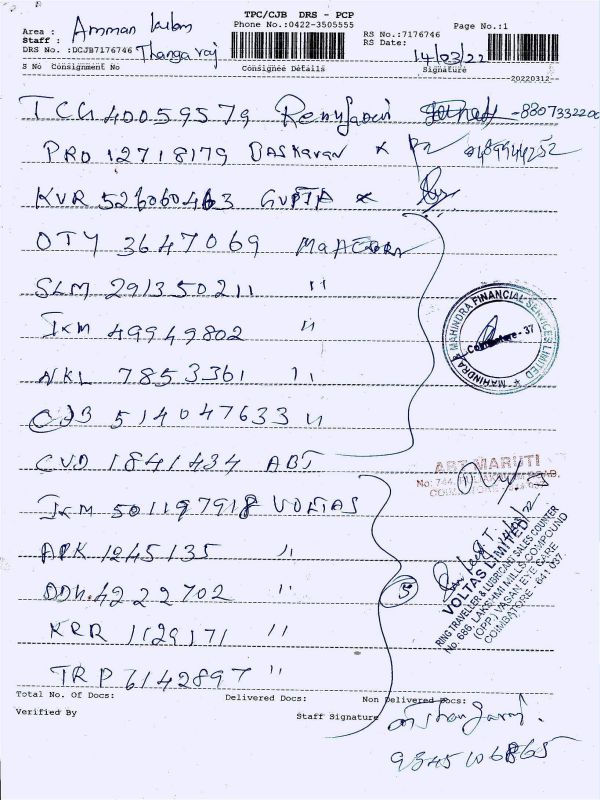 TPC/CJB DRS - PCP
Phone No.:0422-3505555
Page No.:1
Area : Amman kulam
Staff :
DRS No. :DCJB7176746 Thangaraj
RS No.:7176746
RS Date: 14/03/22
S No Consignment No Consignee Details Signature
20220312
TCG 40059579
PRO 12718179 BASKARAN x
KVR 526060463 GUPTA x
OTY 3647069
SLM 291350211 "
49949802 "
NKL 7853361 "
CJB 514047633 "
CVD 1841434 ABT
501197918 VOLTAS
APK 1245135 "
4222702 "
KRR 1129171 "
TRP 6142897 "
MAHINDRA & MAHINDRA FINANCIAL SERVICES LIMITED
Coimbatore - 37
ABT MARUTI
VOLTAS LIMITED
RING TRAVELLER & LUBRICANT SALES COUNTER
No. 686, LAKSHMI MILLS COMPOUND
(OPP) VASAN EYE CARE
COIMBATORE - 641 037.
5
Total No. Of Docs: Delivered Docs: Non Delivered Docs:
Verified By Staff Signature
9345106865